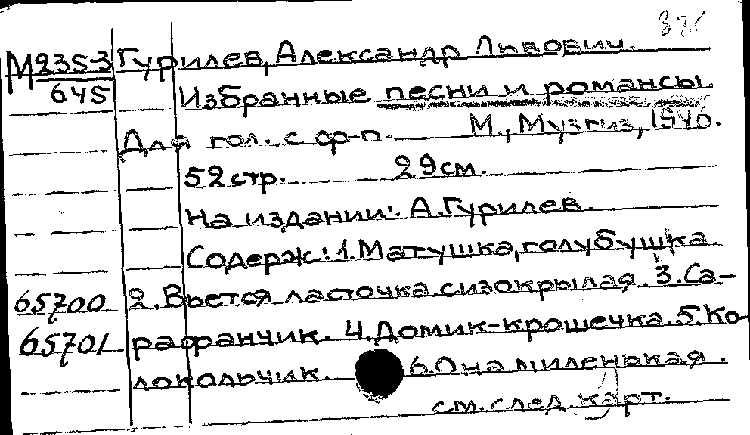 М235-3 Гурилев, Александр Львович.
645 Избранные песни и романсы
Для гол. с ф-п. М., Музгиз, 1940.
52 стр. 29 см.
На издании: А. Гурилев.
Содерж: 1. Матушка, голубушка
65700 2. Вьется ласточка сизокрылая. 3. Са-
65701 рафанчик. 4. Домик-крошечка. 5. Ко-
локольчик. 6. Она миленькая.
см. след. карт.